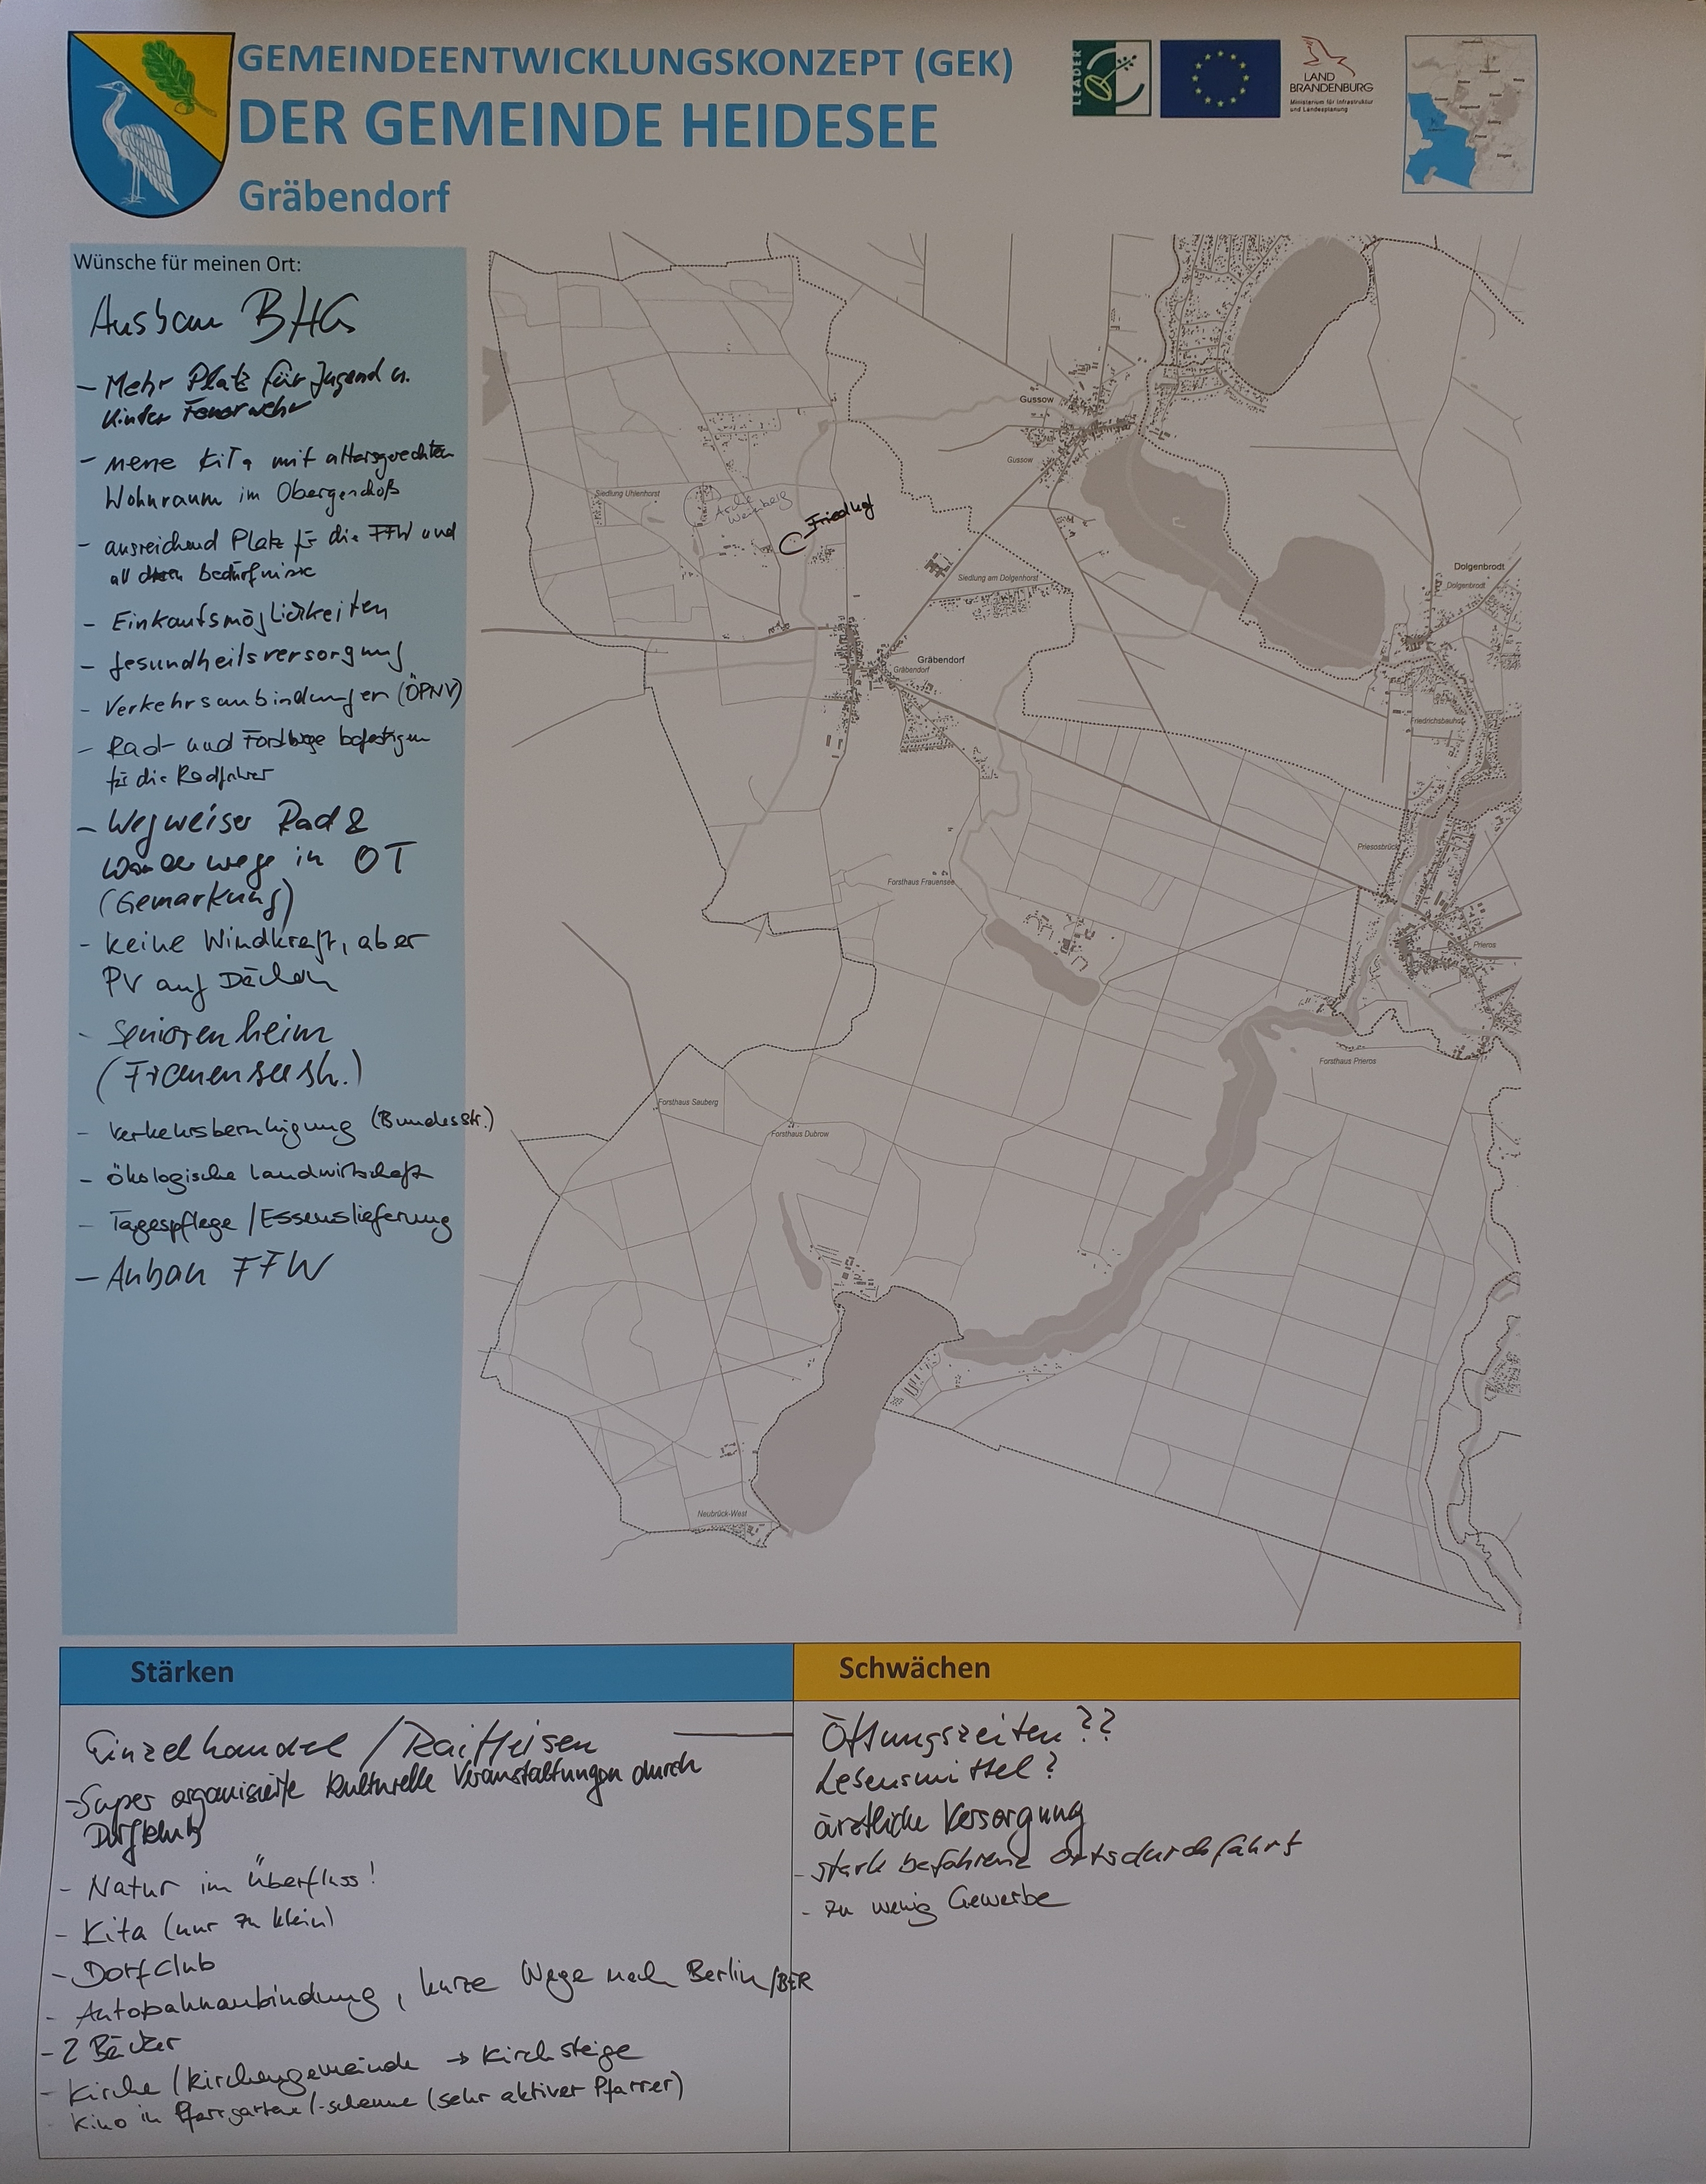 GEMEINDEENTWICKLUNGSKONZEPT (GEK)
DER GEMEINDE HEIDESEE
Gräbendorf
LEADER
LAND
BRANDENBURG
Ministerium für Infrastruktur
und Landesplanung
Wünsche für meinen Ort:
Ausbau BHG
- Mehr Platz für Jugend u.
Kinder Feuerwehr
- neue KiTa mit altersgerechten
Wohnraum im Obergeschoß
- ausreichend Platz für die FFW und
all deren bedürfnisse
- Einkaufsmöglichkeiten
- Gesundheitsversorgung
- Verkehrsanbindungen (ÖPNV)
- Rad- und Forstwege befestigen
für die Radfahrer
- Wegweiser Rad &
Wanderwege in OT
(Gemarkung)
- keine Windkraft, aber
PV auf Dächern
- Seniorenheim
(Frauenseestr.)
- Verkehrsberuhigung (Bundesstr.)
- ökologische Landwirtschaft
- Tagespflege / Essenslieferung
- Anbau FFW
Gussow
Gussow
Siedlung Uhlenhorst
Arche
Weinberg
Friedhof
Siedlung am Dolgenhorst
Dolgenbrodt
Dolgenbrodt
Gräbendorf
Gräbendorf
Friedrichsbauhof
Priesosbrück
Forsthaus Frauensee
Prieros
Forsthaus Prieros
Forsthaus Sauberg
Forsthaus Dubrow
Neubrück-West
Stärken
Einzelhandel / Raiffeisen
- Super organisierte kulturelle Veranstaltungen durch
Dorfklub
- Natur im Überfluss!
- Kita (nur zu klein)
- Dorfclub
- Autobahnanbindung, kurze Wege nach Berlin/BER
- 2 Bäcker
- Kirche / Kirchengemeinde → Kirchsteige
- Kino in Pfarrgarten/-scheune (sehr aktiver Pfarrer)
Schwächen
Öffungszeiten ??
Lebensmittel ?
ärztliche Versorgung
- stark befahrene Ortsdurchfahrt
- zu wenig Gewerbe